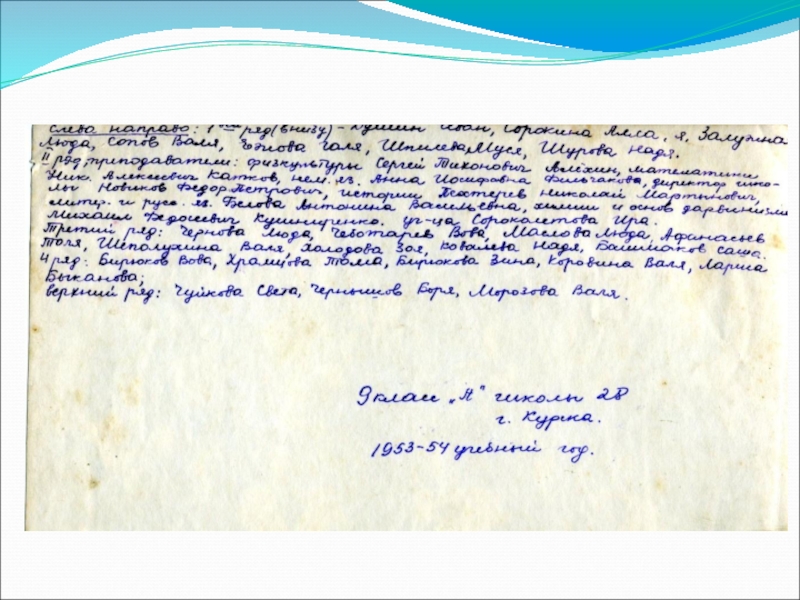 слева направо: 1ый ряд (внизу) – Иван, Сорокина Алла, я, Залузина
Люда, Сопов Валя, Галя, Муся, Шурова Надя.
II ряд, преподаватели: физкультуры Сергей Тихонович Алёхин, математики
Ник. Алексеевич Катков, нем. яз. Анна Иосифовна директор шко-
лы Новиков Федор Петрович, истории Николай Мартынович,
литер. и русс. яз. Белова Антонина Васильевна, химии и основ дарвинизма
Михаил Федосеевич Кушниренко. уч-ца Сороколетова Ира.
Третий ряд: Чернова Люда, Чеботарев Вова, Маслова Люда, Афанасьев
Толя, Валя, Холодова Зоя, Ковалева Надя, Башмаков Саша.
4 ряд: Бирюков Вова, Храмцова Тома, Бирюкова Зина, Коровина Валя, Лариса
Быканова;
верхний ряд: Чуйкова Света, Чернышов Боря, Морозова Валя.
9 класс „А" школы 28
г. Курска.
1953-54 учебный год.